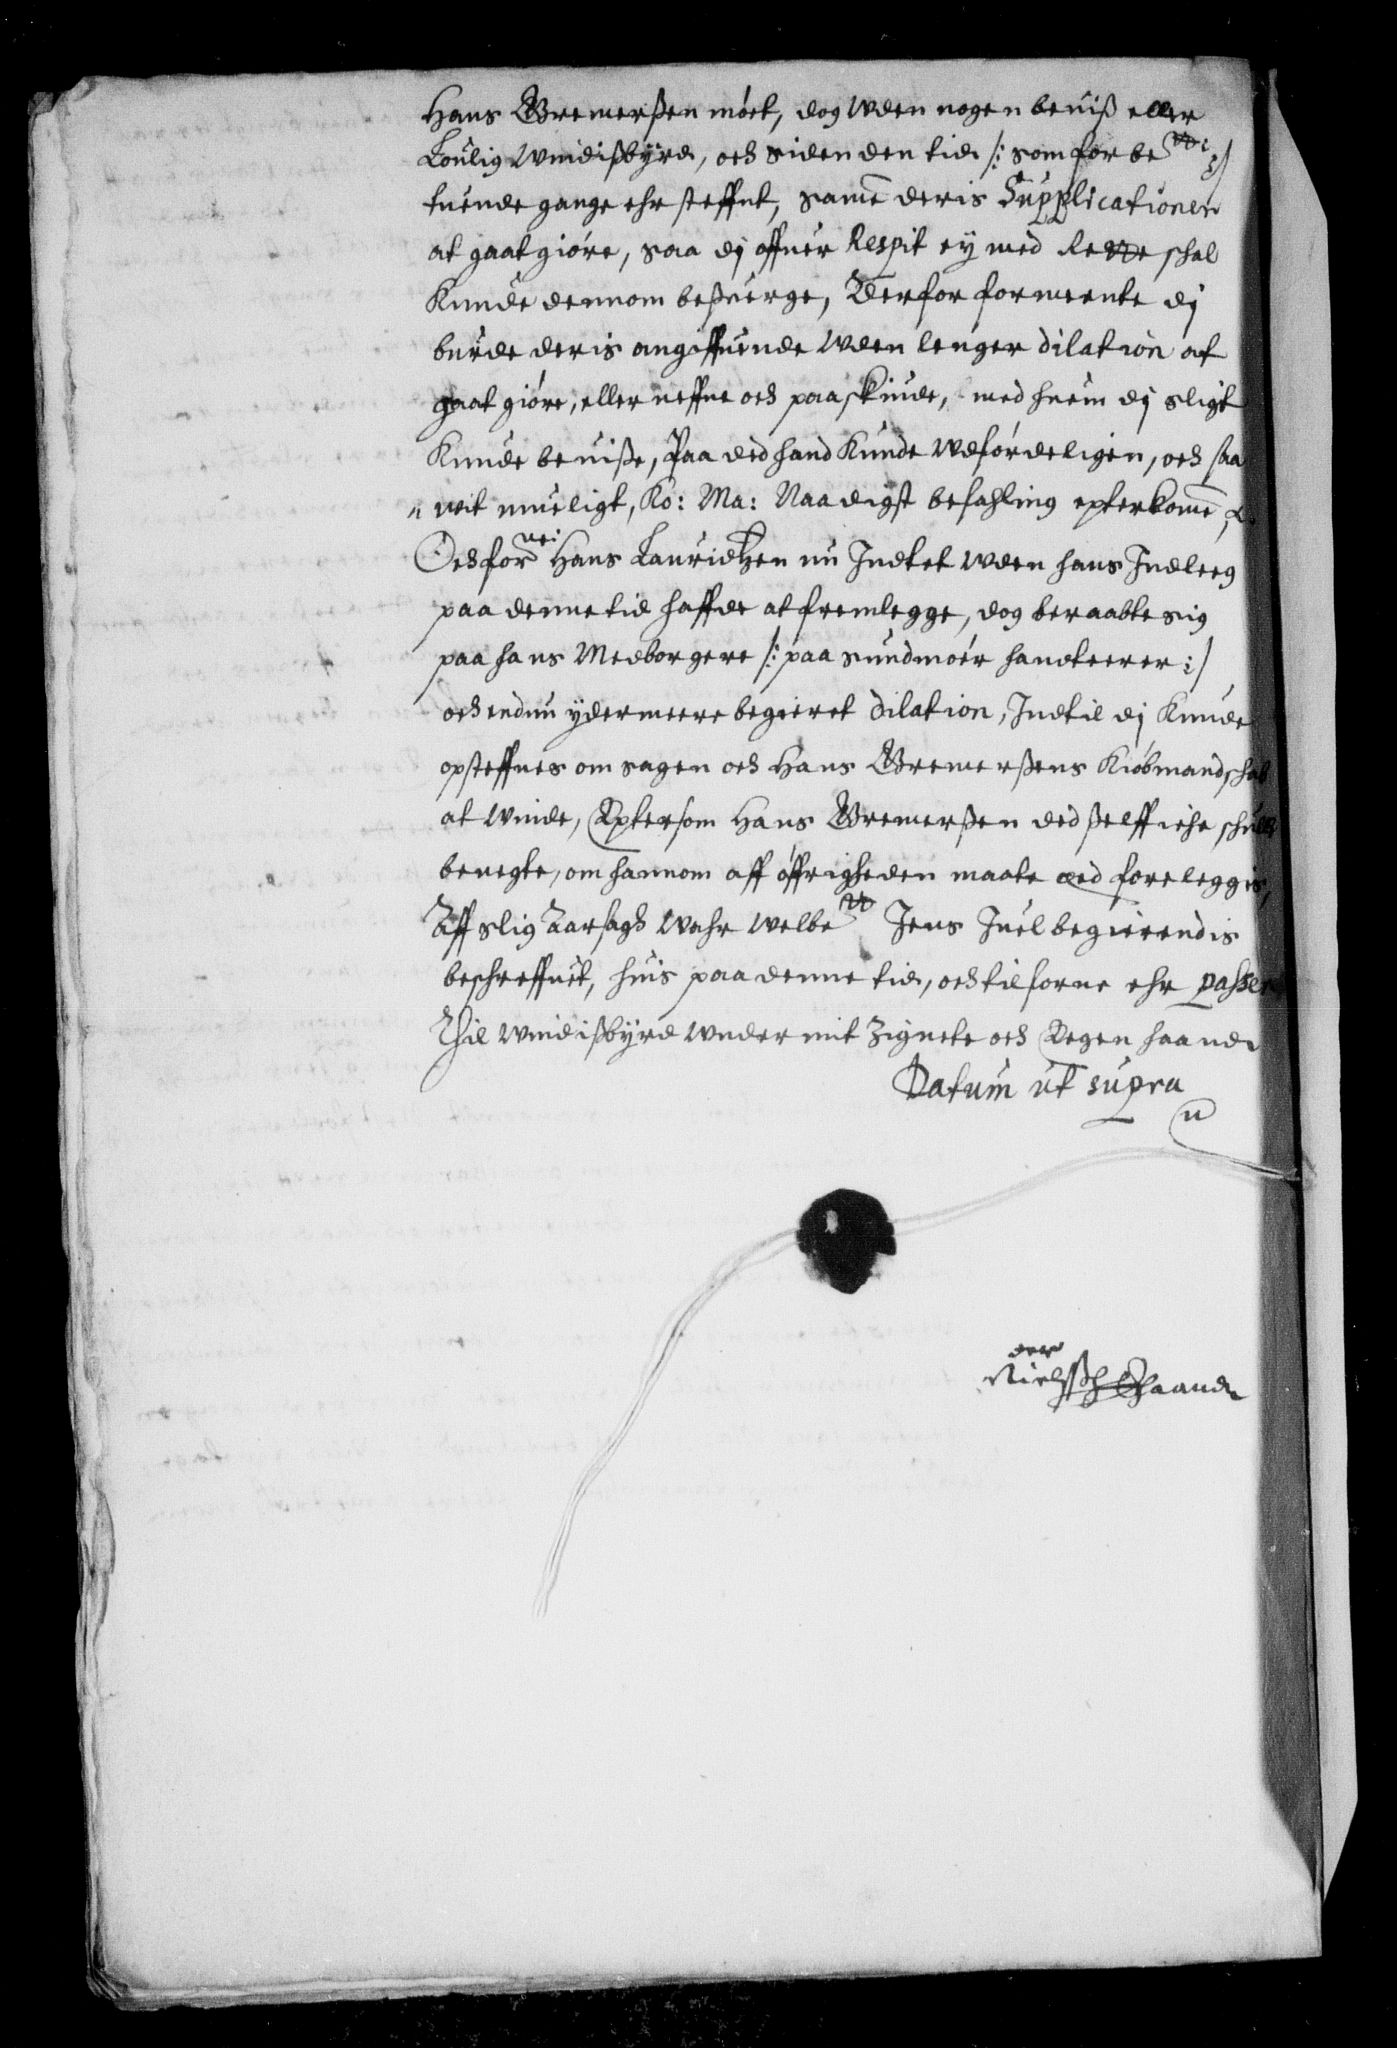 Hans Bremerßen mört, dog uden nogen beuiß eller
Loulig Windißbyrd, och siden den tid /: som for be:te :/
tuende gange ehr steffnt, same deris Supplicationer
at gaat giöre, saa dj offuer Respit ey med Rette schal
Kunde dennom beßuerge, Derfor formeente dj
burde deris angiffuende uden lenger dilation at
gaat giöre, eller neffne och paaskiude, med huem dj sligt
Kunde beuiße, Paa ded hand Kunde udfördeligen, och saa
uit mueligt, Ko: Ma: Naadigst befahling epterkome,
Och for Hans Lauridtzen nu Indtet uden hans Indleeg
paa denne tid haffde at fremlegge, dog beraabte sig
paa hans Medborgere /: paa sundmöer handteerer :/
och endnu ydermeere begieret dilation, Indtil dj Kunde
opsteffnes om sagen och Hans Bremerßens Kiöbmandschab
at Winde, Eptersom Hans Bremerßen ded self iche schulle
benegte, om hannom aff öffrigheden maate æd foreleggis,
Aff slig Aarsagh Wahr Welbe:te Jens Juel begierendis
beschreffuet, huis paa denne tid, och tilforne ehr passert
Thil Windißbyrd under mit Zignete och Eegen haand
Datum ut supra
haand